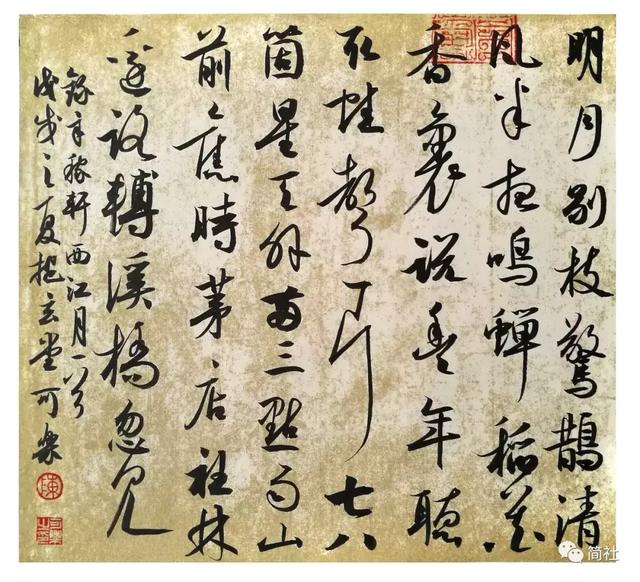 明月别枝驚鵲清
風半夜鳴蟬稻花
香裏説豐年聽
取蛙聲一片七八
箇星天外兩三點雨山
前舊時茅店社林
邊路轉溪橋忽見
錄辛稼軒西江月一首
戊戌之夏抱玄堂可樂
陳
简社